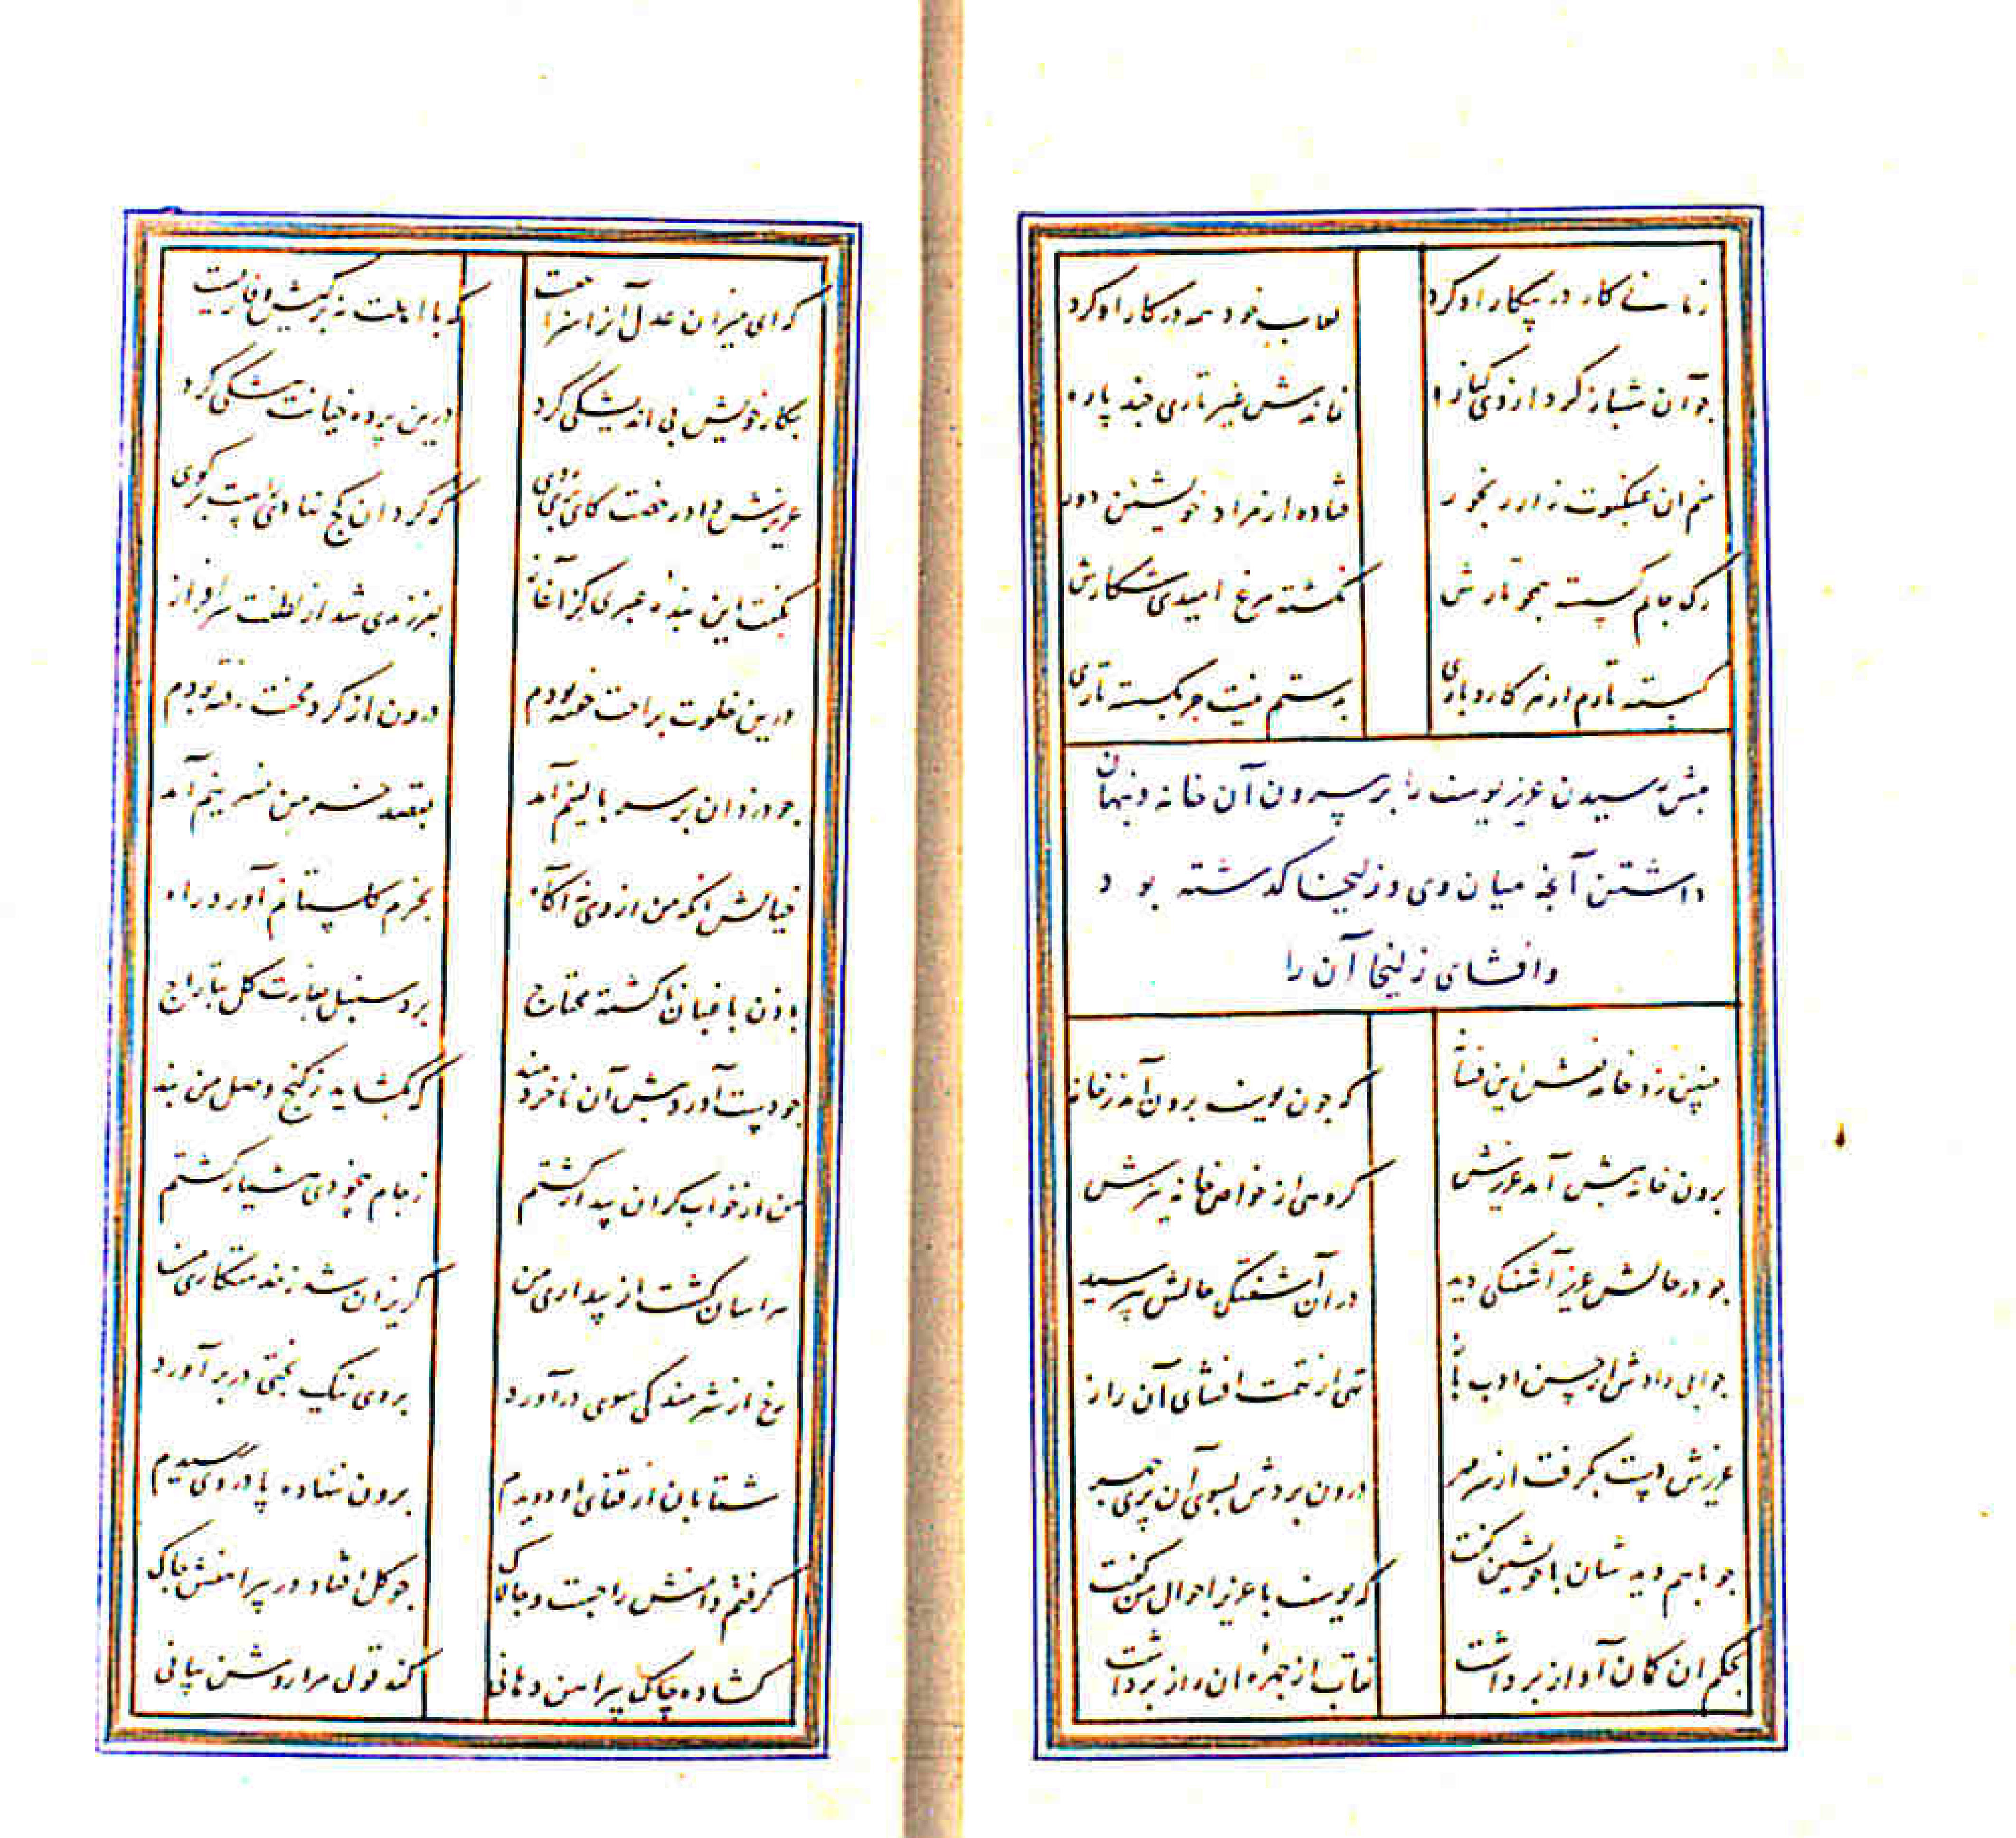 زمانی کار در پیکار او کرد لعاب خود همه در کار او کرد
چو آن شهباز کرد از وی کناره نماندش غیر تاری چند پاره
منم آن عنکبوت زار رنجور فتاده از مراد خویشتن دور
رک جانم کسسته همچو تارش نکشته مرغ امیدی شکارش
کسسته تارم از هر کار و باری بدستم نیست جز بکسسته تاری
پیش رسیدن عزیز یوسف را بر بیرون آن خانه و پنهان
داشتن آنچه میان وی و زلیخا کذشته بود
و افشای زلیخا آن را
چنین زد خامه نقش این فسانه که چون یوسف برون آمد ز خانه
برون خانه پیش آمد عزیزش کروهی از خواص خانه نیزش
چو در حالش عزیز آشفتکی دید در آن آشفتکی حالش بپرسید
جوابی دادش از حسن ادب باز تهی از تهمت افشای آن راز
عزیزش دست بکرفت از سر مهر درون بردش بسوی آن پری چهر
چو با هم دیدشان با خویشتن کفت که یوسف با عزیز احوال من کفت
بحکم آن کمان آواز برداشت نقاب از چهره آن راز برداشت
که ای میزان عدل آنرا سزا چیست که با اهلت نه بر کیش وفا زیست
بکار خویش بی اندیشکی کرد درین پرده خیانت پیشکی کرد
عزیزش داد رخصت کای پری روی که کرد این کج نهادی راست برکوی
بکفت این بنده عبری کز آغاز بفرزندی شد از لطفت سرافراز
درین خلوت براحت خفته بودم درون از کرد محنت رفته بودم
چو دزدان بر سر بالینم آمد بقصد خرمن نسرینم آمد
خیالش آنکه من از وی نه آکاه بحرم کلستانم آورد راه
باذن باغبان ناکشته محتاج برد سنبل بغارت کل بتاراج
چو دست آورد پیش آن ناخردمند که بکشاید ز کنج وصل من بند
من از خواب کران بیدار کشتم ز جام بیخودی هشیار کشتم
هراسان کشت از بیداری من کریزان شد ز خدمتکاری من
رخ از شرمندکی سوی در آورد بروی نیک بختی در بر آورد
شتابان از قفای او دویدم برون ننهاده پا در وی رسیدم
کرفتم دامنش را چست و چالاک چو کل افتاد در پیراهنش چاک
کشاده چاک پیراهن دهانی کند قول مرا روشن بیانی